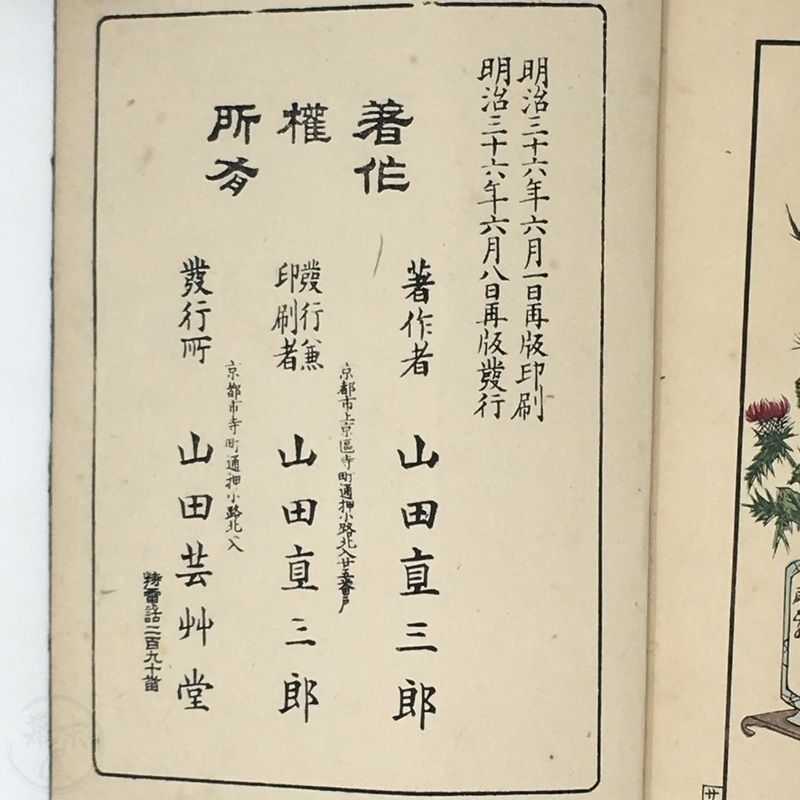 明治三十六年六月一日再版印刷
明治三十六年六月八日再版發行
著作
權
所有
著作者 山田直三郎
京都市上京區寺町通押小路北入廿五番戸
發行兼
印刷者 山田直三郎
京都市寺町通押小路北入
發行所 山田芸艸堂
特電話二百九十番